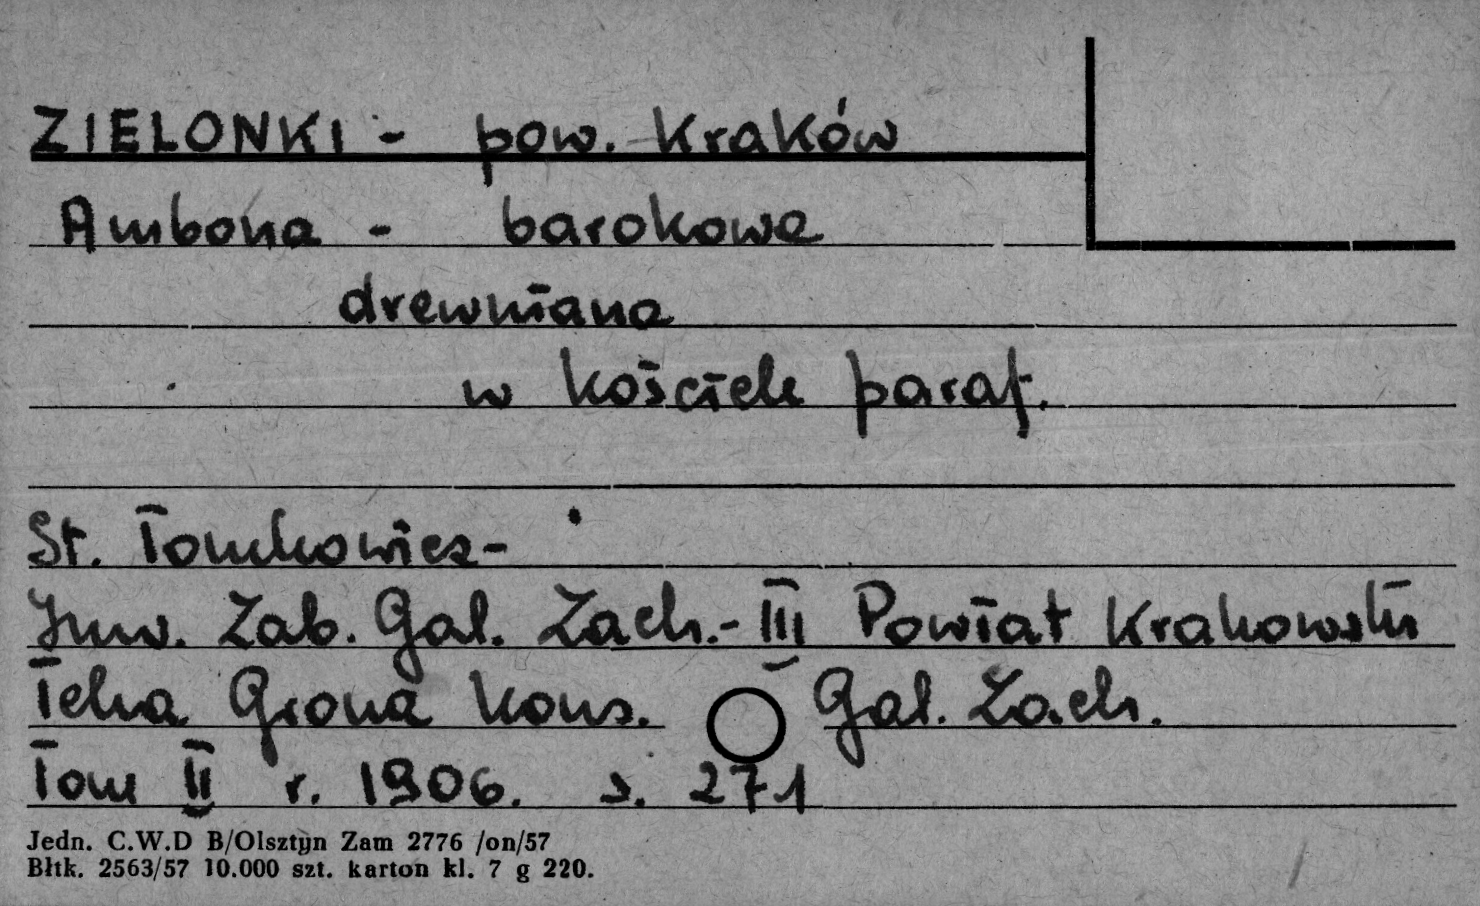 ZIELONKI - pow. Kraków
Ambona - barokowa
drewniana
w kościele paraf.
St. Tomkowicz-
Inw. Zab. Gal. Zach.- III Powiat Krakowski
Teka Grona Kons. Gal. Zach.
Tom II r. 1906. s. 271
Jedn. C.W.D B/Olsztyn Zam 2776 /on/57
Błtk. 2563/57 10.000 szt. karton kl. 7 g 220.